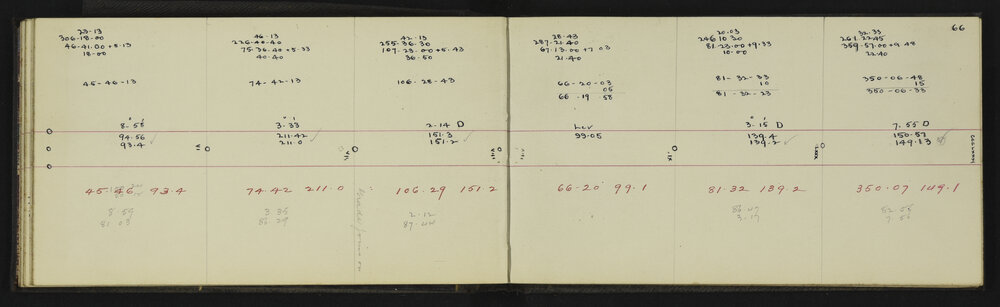 66
23.13
306-18-00
46-41.00 +5.13
18-00
45-46-13
8-58
94.56
93.4
45.46 93.4
8.59
81.03
46.13
226-40-40
75.36.40 +5.33
40-40
74-42-13
3-33
211.42
211.0
74-42 211.0
3.35
86.29
42.13
255-36-30
107-23-00 +5.43
36.50
106-28-43
2-14 D
151.3
151.2
106-29 151.2
2-12
87.44
28-43
287-21-40
67.13.00 +7.03
21-40
66-20-03
05
66-19-58
Lev
99.05
66-20 99.1
20.03
246 10 30
81.23.00 +9.33
10.00
81-32-33
10
81-32-23
3-15 D
139.4
139.2
81-32 139.2
86.47
3.17
32.33
261.22.45
359-57.00 +9.48
22.40
350-06-48
15
350-06-33
7.55 D
150.57
149.13
350-07 149.1
82.05